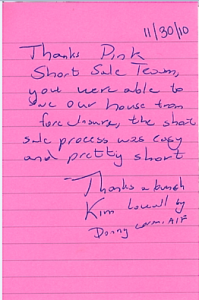 11/30/10
Thanks Pink
Short Sale Team,
you were able to
save our house from
foreclosure, the short
sale process was easy
and pretty short
Thanks a bunch
Kim Lowell by
Donny